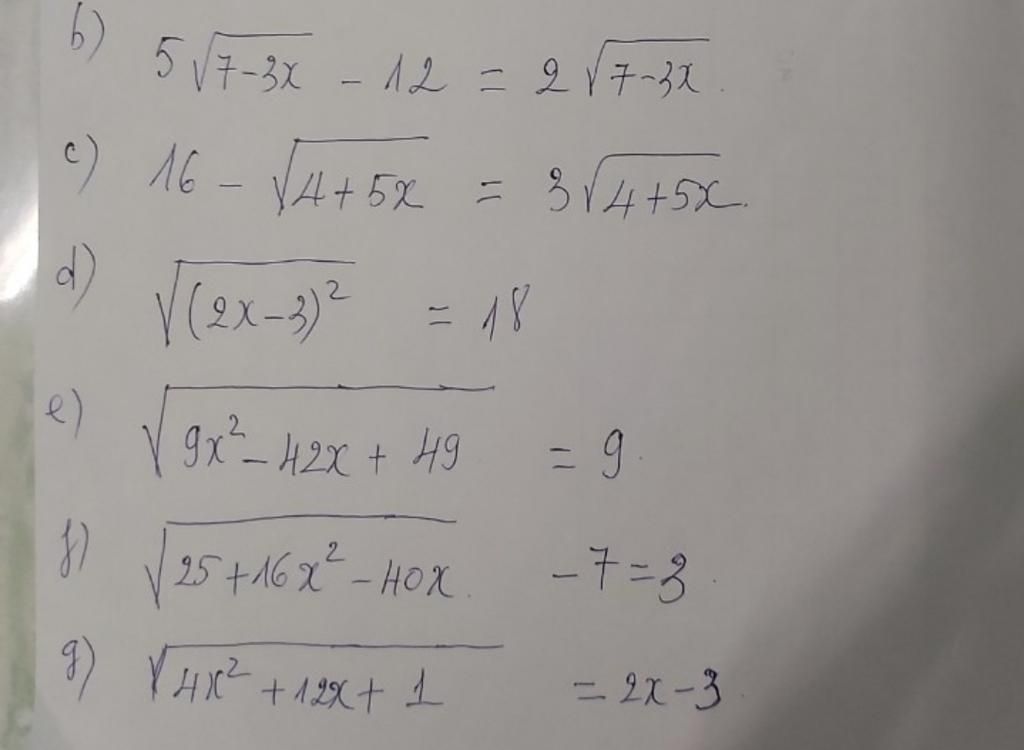 b) 5√(7-3x) - 12 = 2√(7-3x).
c) 16 - √(4+5x) = 3√(4+5x).
d) √((2x-3)²) = 18
e) √(9x²-42x+49) = 9.
f) √(25+16x²-40x) -7=3.
g) √(4x²+12x+1) = 2x-3.